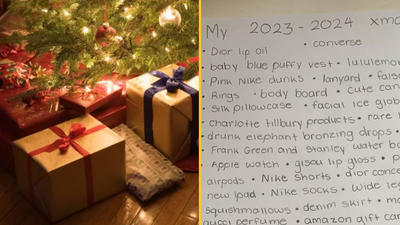 My 2023-2024 xma
• Dior lip oil • converse
baby blue puffy vest • lululemon
• Pink Nike dunks • lanyard • false
• Rings • body board • cute can
• Silk pillowcase • facial ice glob
Charlotte tillbury products • rare
• drunk elephant bronzing drops •
• Frank Green and Stanley water bo
• Apple watch • gisou lip gloss • p
airpods • Nike Shorts • dior conce
new Ipad • Nike socks • wide leg
squishmallows • denim skirt • ma
gucci perfume • amazon gift car